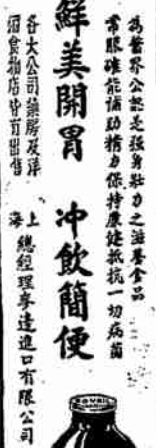 為醫界公認是強身壯力之滋養食品
常服確能補助精力保持康健抵抗一切病菌
鮮美開胃 冲飲簡便
各大公司藥房及洋
酒食物店皆有出售
上海
總經理麥達進口有限公司
BOVRIL